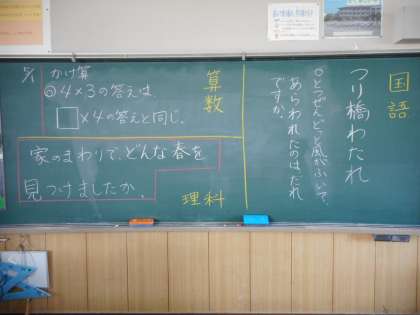 国語
つり橋わたれ
○とつぜん、どっと風がふいて、
あらわれたのはだれ
ですか。
算数
かけ算
◎4×3の答えは、
□×4の答えと同じ。
家のまわりで、どんな春を
見つけましたか。
理科